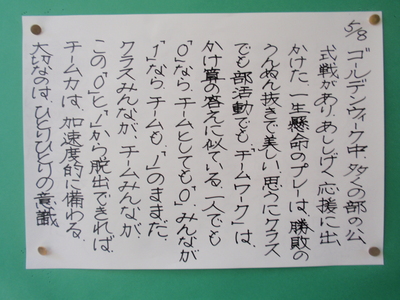 5/8 ゴールデンウィーク中、多くの部の公
式戦があり、あししげく応援に出
かけた。一生懸命のプレーは、勝敗の
うんぬん抜きで美しい。思うにクラス
でも部活動でも、“チームワーク”は、
かけ算の答えに似ている。一人でも
“0”なら、チームとしても“0”。みんなが
“1”なら、チームも、“1”のままだ。
クラスみんなが、チームみんなが、
この“0”と“1”から脱出できれば、
チーム力は、加速度的に備わる。
大切なのは、ひとりひとりの意識